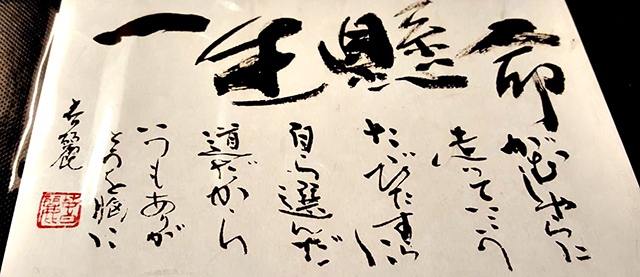 一生懸命
がむしゃらに
走っていこう
ただひたすらに
自ら選んだ
道だから
いつもありが
とうを胸に